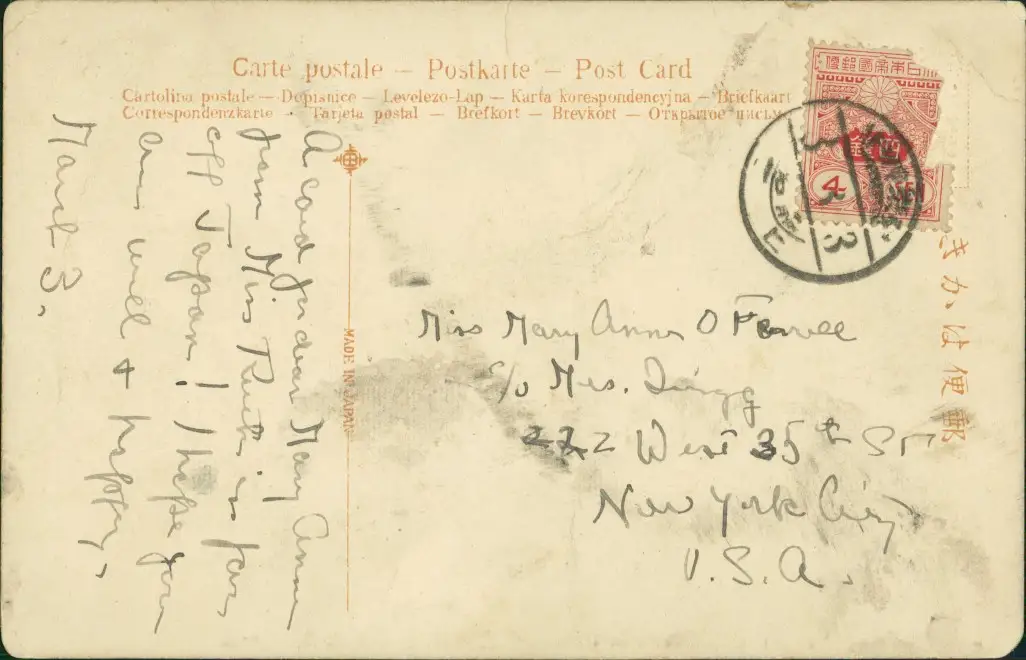 Carte postale — Postkarte — Post Card
Cartolina postale — Dopisnice — Levelezo-Lap — Karta korespondencyjna — Briefkaart
Correspondenzkarte · Tarjeta postal — Brefkort — Brevkort — Открытое письм
大日本帝國郵便
四錢
4
3
3
郵便はかき
MADE IN JAPAN
A card for dear Mary Anne
from Miss Ruth in far,
off Japan! I hope you
are well & happy.
March 3.
Miss Mary Anne O'Farrell
c/o Mrs.
222 West 35th St
New York City
U.S.A.